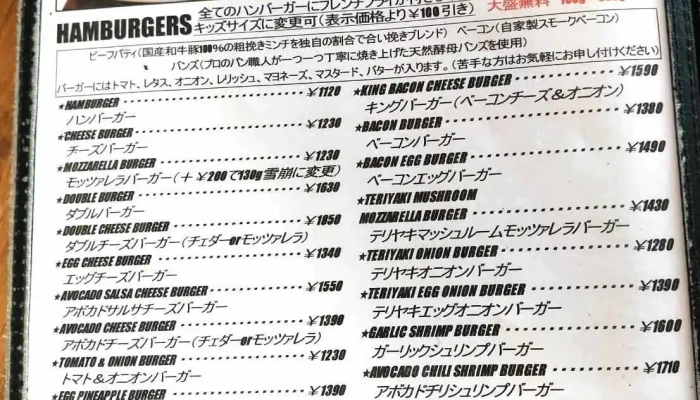 全てのハンバーガーにフレンチフライが付き
HAMBURGERS キッズサイズに変更可(表示価格より¥100引き)
大盛無料
ビーフパティ(国産和牛豚100%の粗挽きミンチを独自の割合で合い挽きブレンド) ベーコン(自家製スモークベーコン)
バンズ(プロのパン職人が一つ一つ丁寧に焼き上げた天然酵母バンズを使用)
バーガーにはトマト、レタス、オニオン、レリッシュ、マヨネーズ、マスタード、バターが入ります。(苦手な方はお気軽にお申し付けください)
★HAMBURGER ¥1120
ハンバーガー
★CHEESE BURGER ¥1230
チーズバーガー
★MOZZARELLA BURGER ¥1230
モッツァレラバーガー(+¥200で130g雪崩に変更)
★DOUBLE BURGER ¥1630
ダブルバーガー
★DOUBLE CHEESE BURGER ¥1850
ダブルチーズバーガー(チェダーorモッツァレラ)
★EGG CHEESE BURGER ¥1340
エッグチーズバーガー
★AVOCADO SALSA CHEESE BURGER ¥1550
アボカドサルサチーズバーガー
★AVOCADO CHEESE BURGER ¥1390
アボカドチーズバーガー(チェダーorモッツァレラ)
★TOMATO & ONION BURGER ¥1230
トマト&オニオンバーガー
★EGG PINEAPPLE BURGER ¥1390
★KING BACON CHEESE BURGER ¥1590
キングバーガー(ベーコンチーズ&オニオン)
★BACON BURGER ¥1380
ベーコンバーガー
★BACON EGG BURGER ¥1490
ベーコンエッグバーガー
★TERIYAKI MUSHROOM
MOZZARELLA BURGER ¥1430
テリヤキマッシュルームモッツァレラバーガー
★TERIYAKI ONION BURGER ¥1280
テリヤキオニオンバーガー
★TERIYAKI EGG ONION BURGER ¥1390
テリヤキエッグオニオンバーガー
★GARLIC SHRIMP BURGER ¥1600
ガーリックシュリンプバーガー
★AVOCADO CHILI SHRIMP BURGER ¥1710
アボカドチリシュリンプバーガー